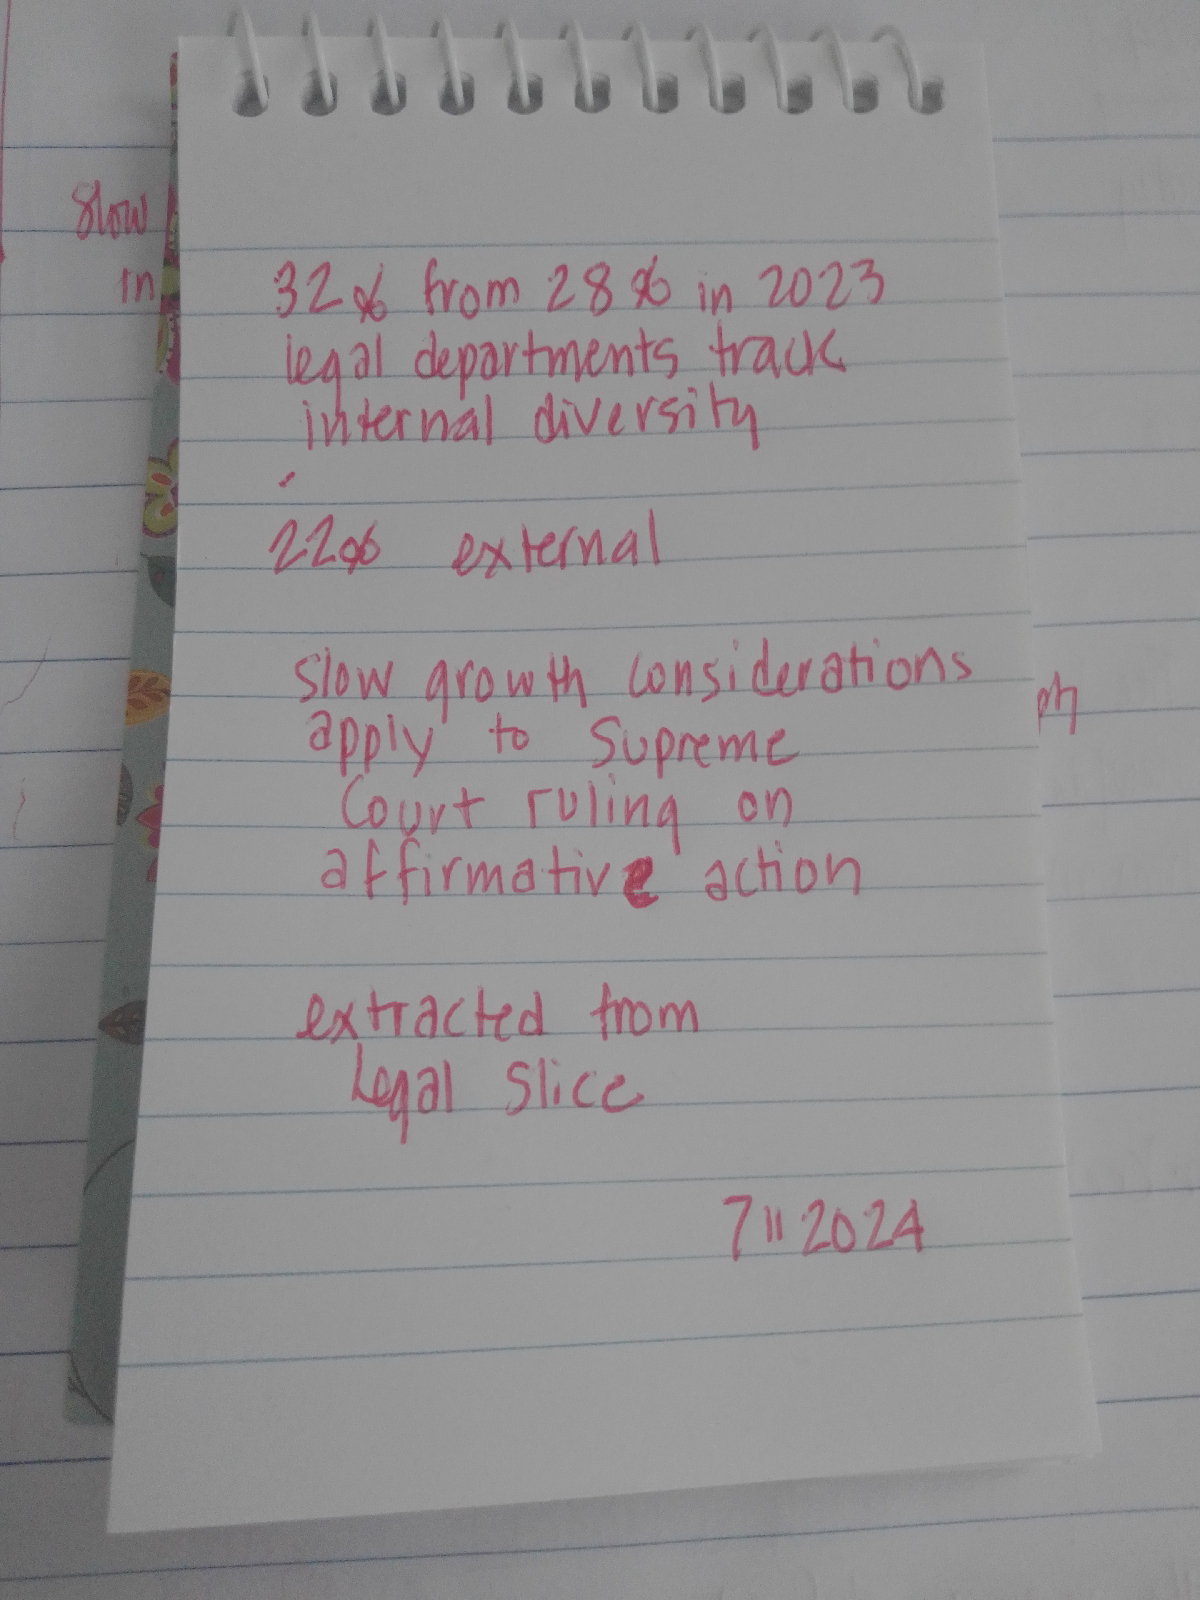 Slow
in
32% from 28% in 2023
legal departments track
internal diversity
22% external
slow growth considerations
apply to Supreme
Court ruling on
affirmative action
extracted from
Legal Slice
7 11 2024